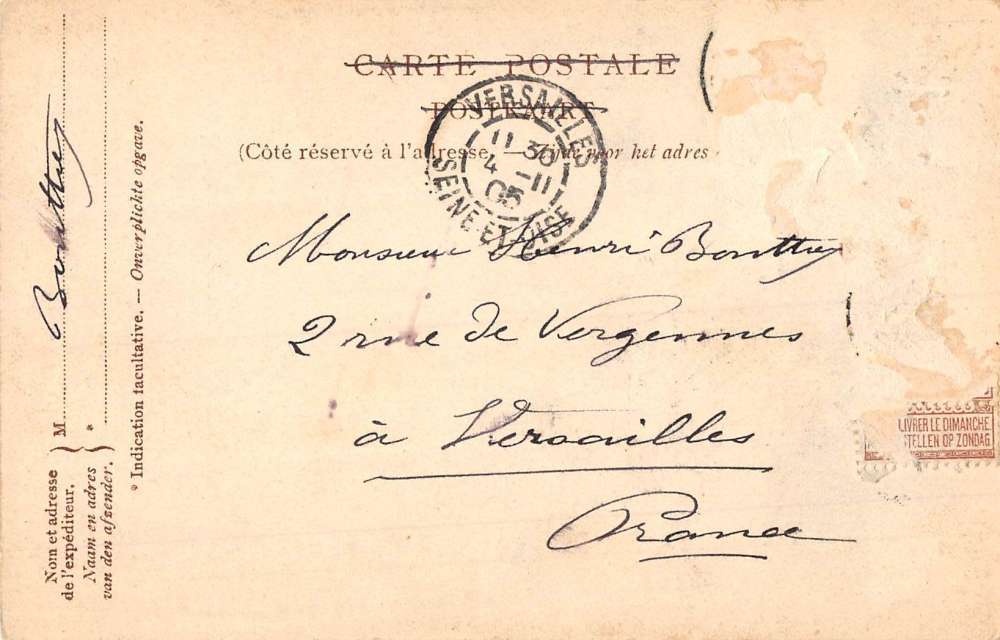 CARTE POSTALE
POSTKAART
(Côté réservé à l'adresse — Zijde voor het adres
VERSAILLES
11 30
4 -11
05
SEINE ET OISE
Monsieur Henri Bonthey
2 rue de Vergennes
à Versailles
France
LIVRER LE DIMANCHE
STELLEN OP ZONDAG
Nom et adresse
de l'expéditeur.
Naam en adres
van den afzender.
M Bonthey
*
* Indication facultative. — Onverplichte opgave.